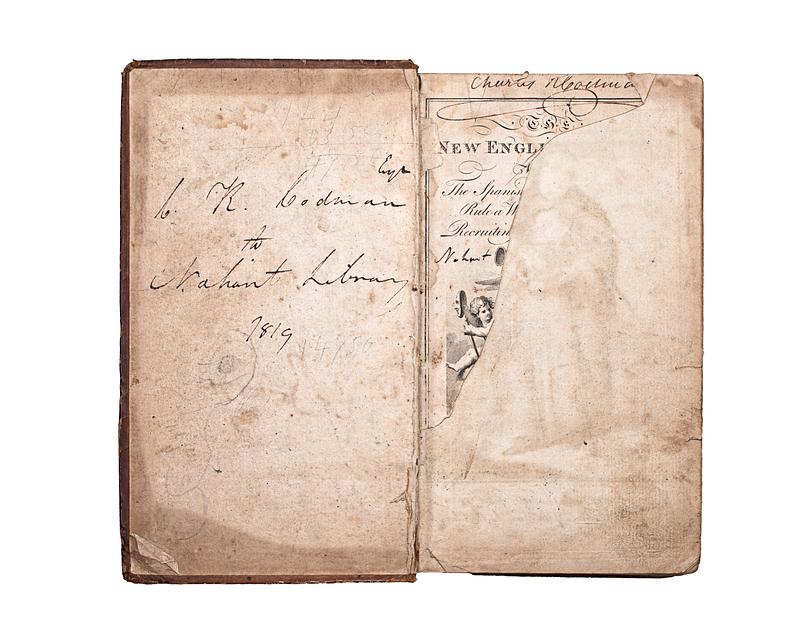 Esqr
C. R. Codman
to
Nahant Library
1819
Charles R Codman
THE
NEW ENGL
The Spanis
Rule a W
Recruitin
Nahant